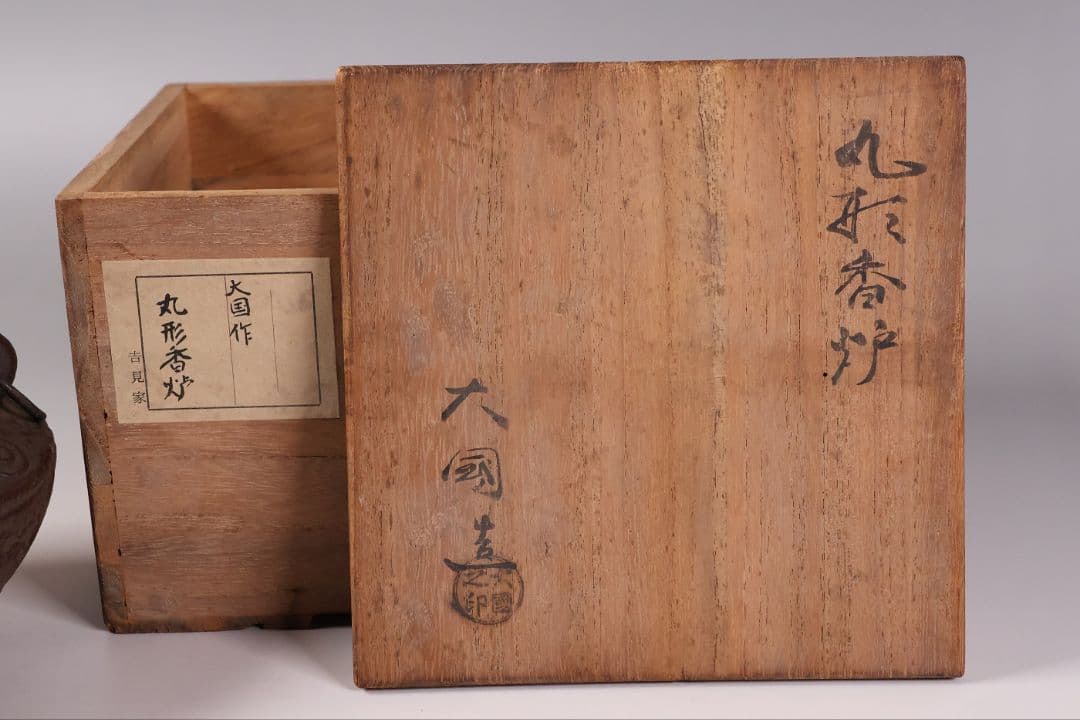 丸形香炉
大國造
大國之印
大国作
丸形香炉
吉見家